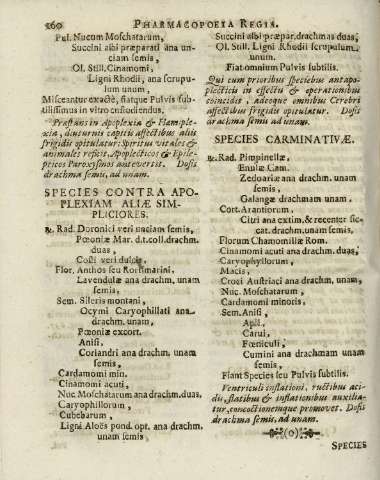 260 PHARMACOPOEIA REGIA.
Pul. Nucum Moschatarum,
Succini albi præparati ana un-
ciam semis,
Ol. Still. Cinamomi,
Ligni Rhodii, ana scrupu-
lum unum,
Misceantur exactè, fiatque Pulvis sub-
tilissimus in vitro custodiendus.
Præstans in Apoplexia & Hæmiple-
xia, diuturnis capitis affectibus aliis
frigidis opitulatur: Spiritus vitales &
animales reficit, Apoplecticos & Epile-
pticos Paroxysmos antevertit. Dosis
drachma semis, ad unam.
SPECIES CONTRA APO-
PLEXIAM ALIÆ SIM-
PLICIORES.
℞. Rad. Doronici veri unciam semis,
Pœoniæ Mar. d.t.coll.drachm.
duas,
Costi veri dulcis,
Flor. Anthos seu Rorismarini,
Lavendulæ ana drachm. unam
semis,
Sem. Sileris montani,
Ocymi Caryophillati ana
drachm. unam,
Pœoniæ excort.
Anisi,
Coriandri ana drachm. unam
semis,
Cardamomi min.
Cinamomi acuti,
Nuc. Moschatarum ana drachm. duas,
Caryophillorum,
Cubebarum,
Ligni Aloës pond. opt. ana drachm.
unam semis
Succini albi præpar. drachmas duas,
Ol. Still. Ligni Rhodii scrupulum
unum.
Fiat omnium Pulvis subtilis.
Qui cum prioribus speciebus antapo-
plecticis in effectu & operationibus
coincidit, adeoque omnibus Cerebri
affectibus frigidis opitulatur. Dosis
drachma semis ad unam.
SPECIES CARMINATIVÆ.
℞. Rad. Pimpinellæ,
Enulæ Cam.
Zedoariæ ana drachm. unam
semis,
Galangæ drachmam unam.
Cort. Arantiorum,
Citri ana extim. & recenter sic-
cat. drachm. unam semis,
Florum Chamomillæ Rom.
Cinamomi acuti ana drachm. duas,
Caryophyllorum,
Macis,
Croci Austriaci ana drachm. unam,
Nuc. Moschatarum,
Cardamomi minoris,
Sem. Anisi,
Apii,
Carui,
Fœniculi,
Cumini ana drachmam unam
semis,
Fiant Species seu Pulvis subtilis.
Ventriculi inflationi, ructibus aci-
dis, flatibus & inflationibus auxilia-
tur, concoctionemque promovet. Dosis
drachma semis, ad unam.
(o)
SPECIES